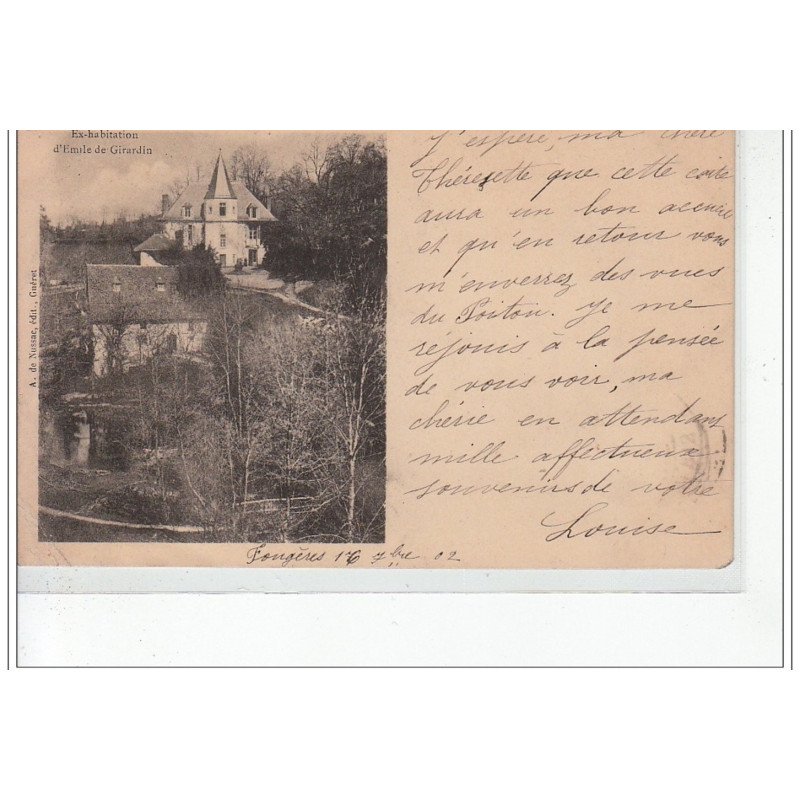 Ex-habitation
d'Emile de Girardin
A. de Nussac, édit., Guéret
J'espère, ma chère
Thérésette que cette carte
aura un bon accueil
et qu'en retour vous
m'enverrez des vues
du Poitou. Je me
rejouis à la pensée
de vous voir, ma
chérie en attendant
mille affectueux
souvenirs de votre
Louise
Fougères 16 7bre 02